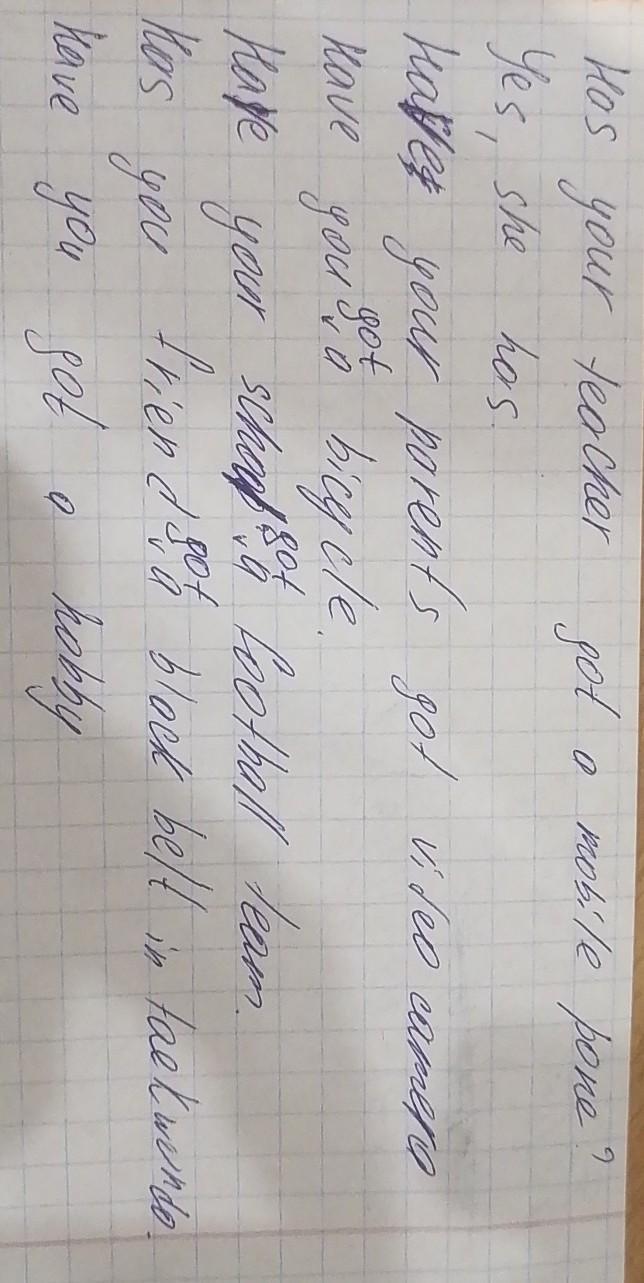 Has your teacher got a mobile pone?
Yes, she has.
Have your parents got video camera
Have you got a bicycle.
Have your school got a football team.
Has you friend got a black belt in taekwondo.
Have you got a hobby